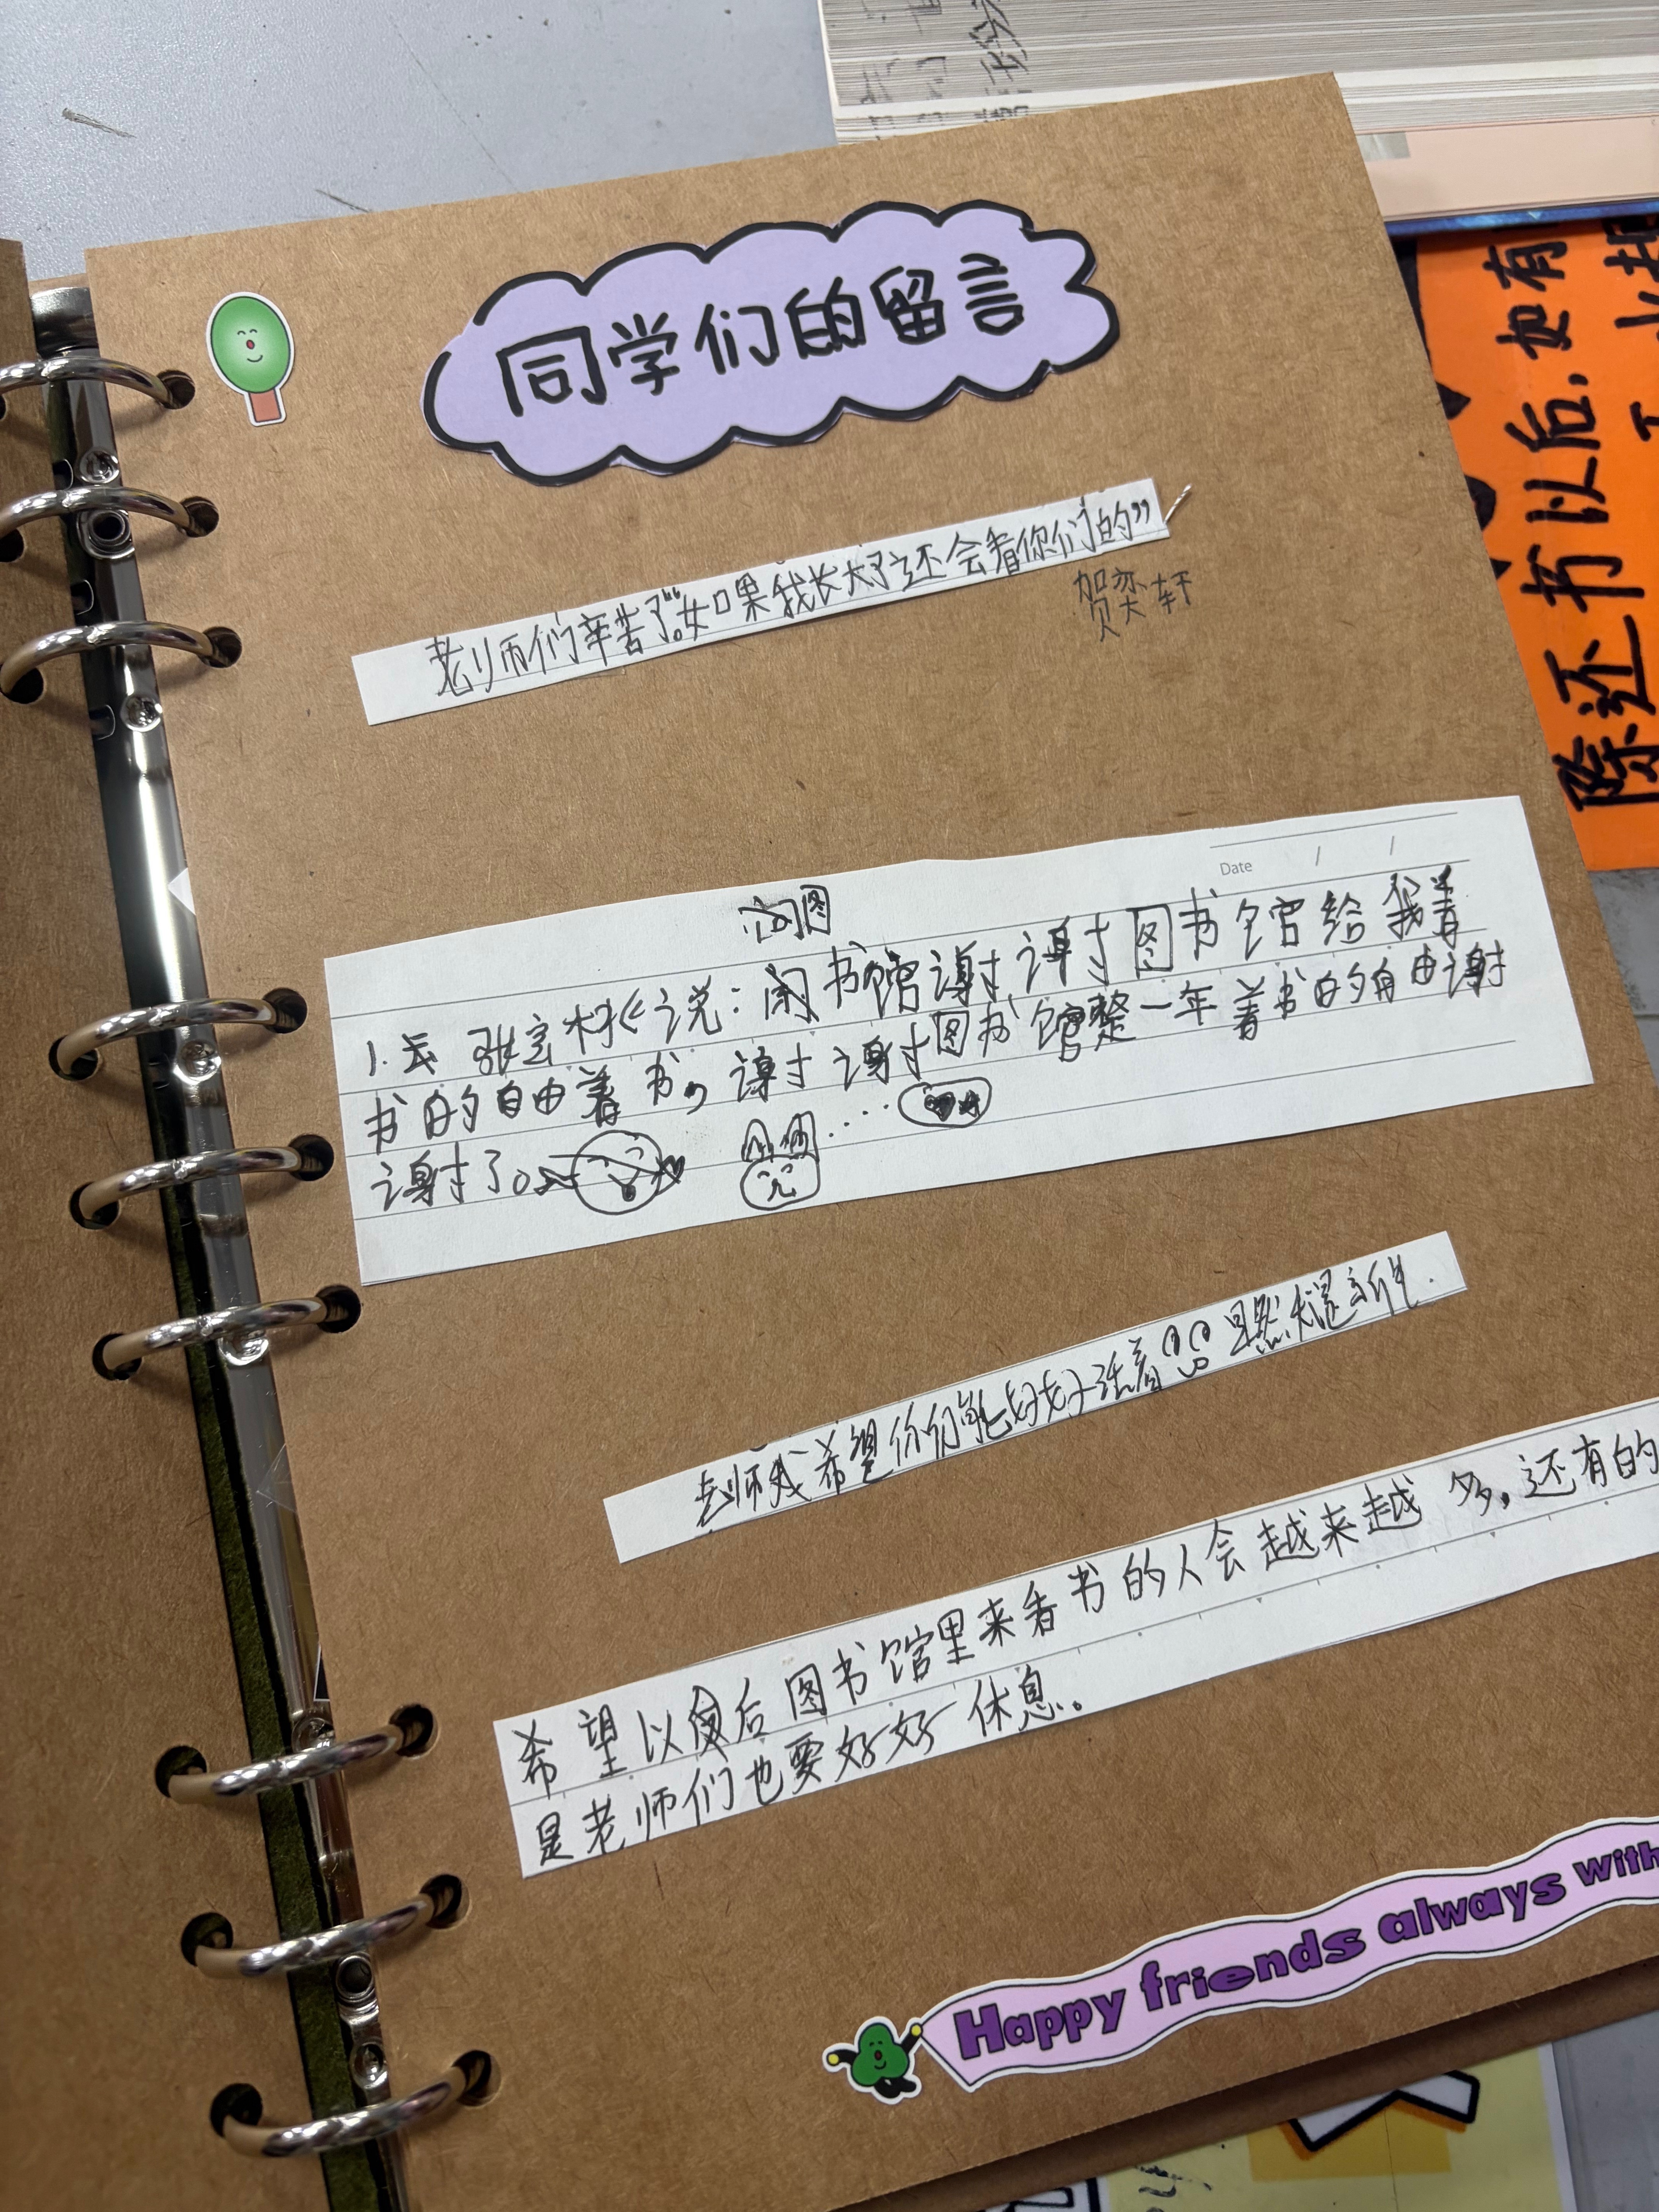 同学们的留言
老师们辛苦了。“如果我长大了还会看你们的”
贺奕轩
图
Date / /
1. 张宝 说：阅书馆谢谢图书馆给我看
书的自由看书，谢谢谢谢图书馆整一年看书的自由谢
谢了。
老师我希望你们能好好活着
希望以后图书馆里来看书的人会越来越多，还有的
是老师们也要好好休息。
Happy friends always with
除还书以后，如有